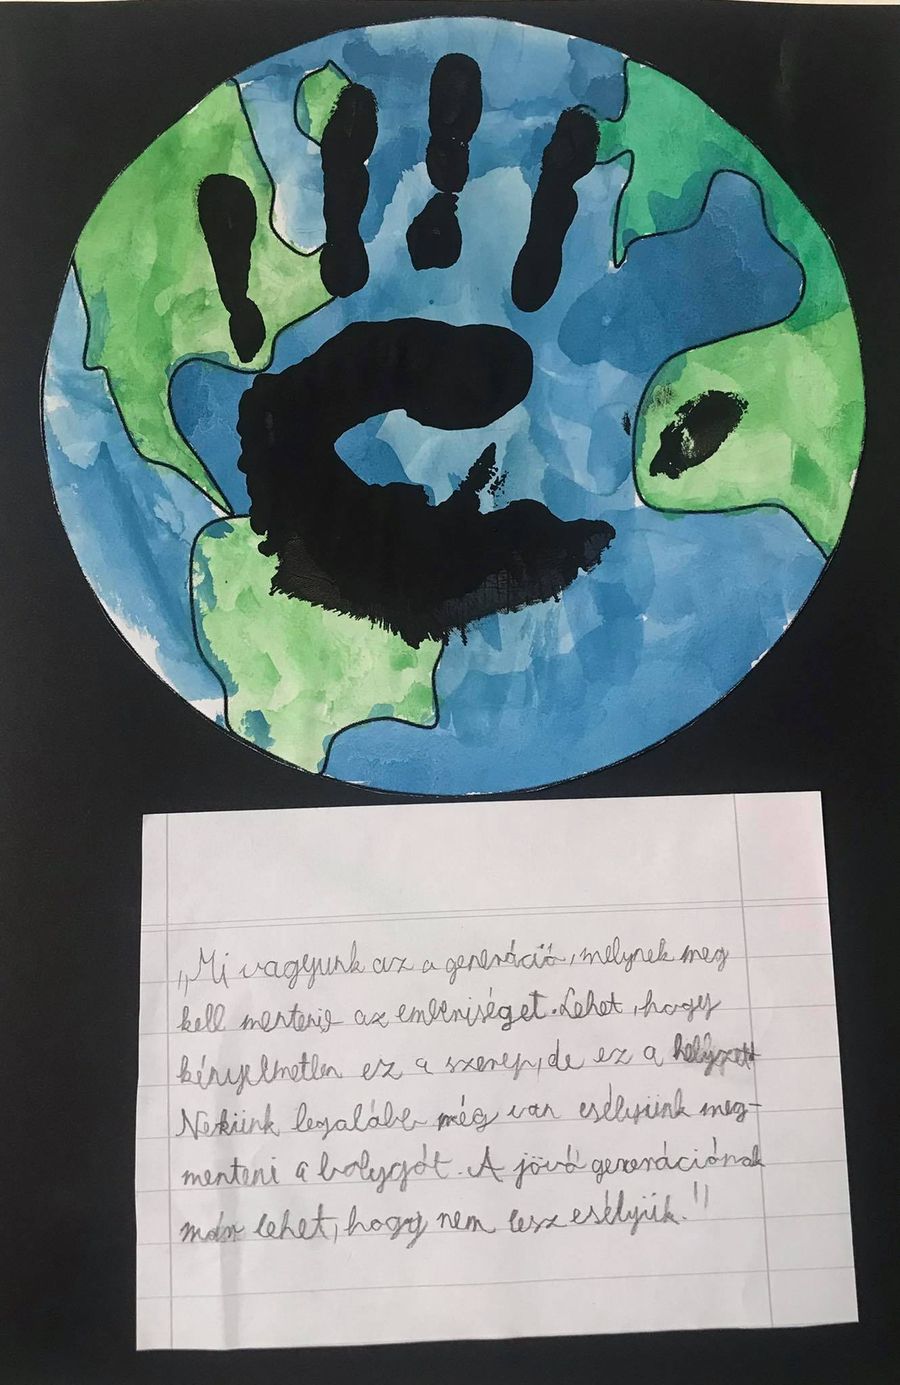 „Mi vagyunk az a generáció, melynek meg
kell mentenie az emberiséget. Lehet, hogy
kényelmetlen ez a szerep, de ez a helyzet
Nekünk legalább még van esélyünk meg-
menteni a bolygót. A jövő generációnak
már lehet, hogy nem lesz esélyük."